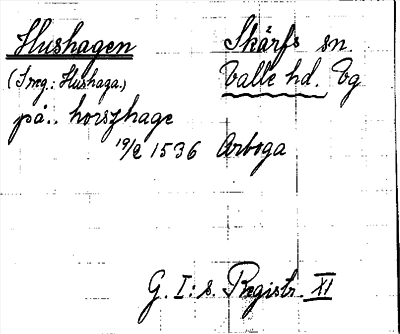 Hushagen Skärfs sn.
(Smeg.: Hushaga.) Valle hd. Vg
på.. horszhage
19/2 1536 Arboga
G. I: s. Registr. XI